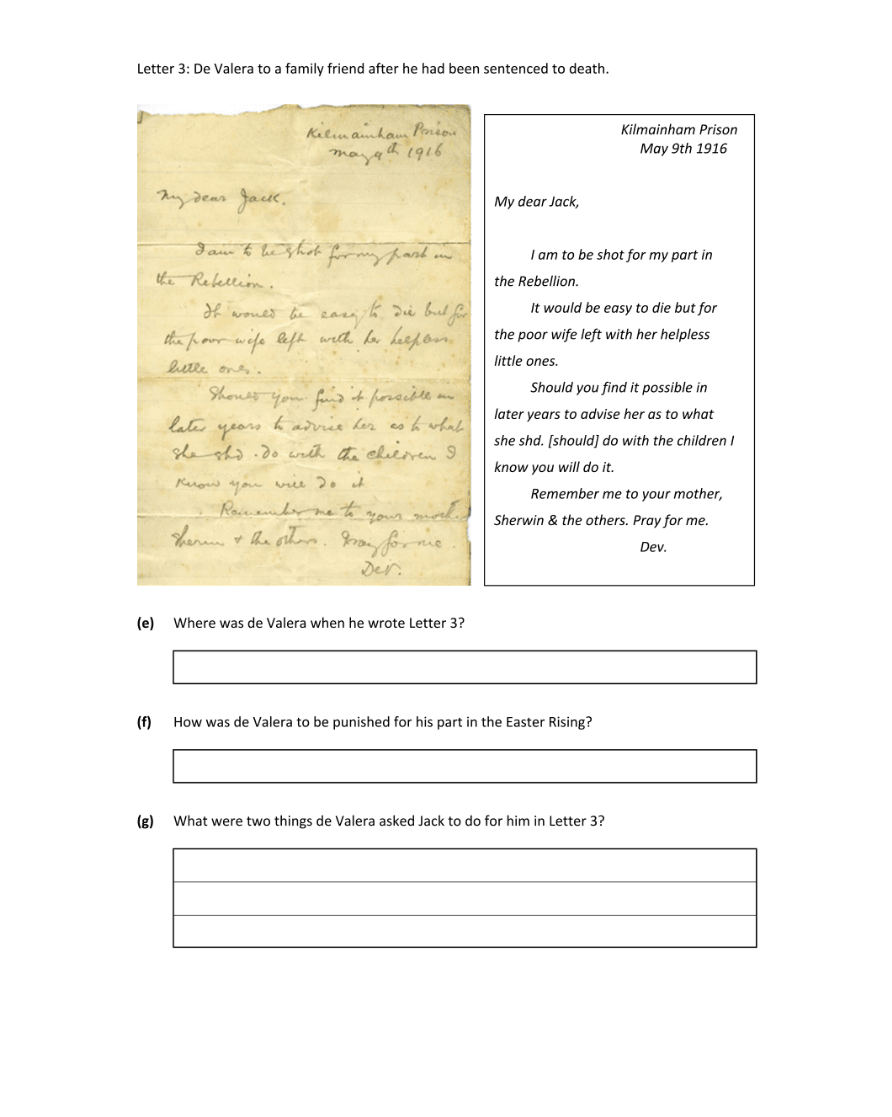 Letter 3: De Valera to a family friend after he had been sentenced to death.
Kilmainham Prison
May 9th 1916
My dear Jack.
I am to be shot for my part in
the Rebellion.
It would be easy to die but for
the poor wife left with her helpless
little ones.
Should you find it possible in
later years to advise her as to what
she shd. do with the children I
know you will do it
Remember me to your mother
Sherwin & the others. Pray for me.
Dev.
Kilmainham Prison
May 9th 1916
My dear Jack,
I am to be shot for my part in
the Rebellion.
It would be easy to die but for
the poor wife left with her helpless
little ones.
Should you find it possible in
later years to advise her as to what
she shd. [should] do with the children I
know you will do it.
Remember me to your mother,
Sherwin & the others. Pray for me.
Dev.
(e) Where was de Valera when he wrote Letter 3?
(f) How was de Valera to be punished for his part in the Easter Rising?
(g) What were two things de Valera asked Jack to do for him in Letter 3?